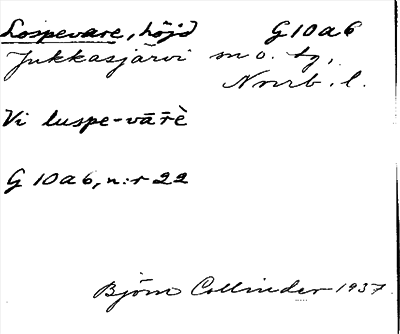 Lospevare, höjd G 10 a 6
Jukkasjärvi sn o. tg,
Norrb. l.
Vi luspe-vārè
G 10 a 6, n:r 22
Björn Collinder 1937